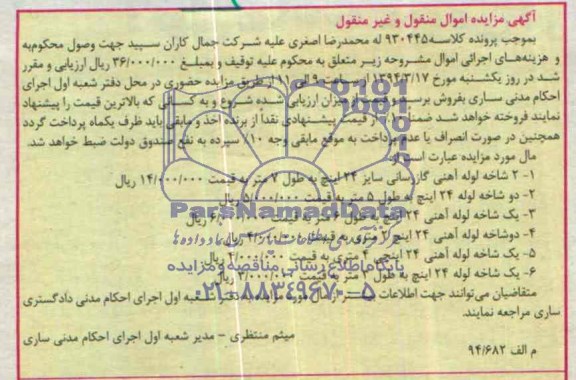 آگهی مزایده اموال منقول و غیر منقول
بموجب پرونده کلاسه ۹۳۰۴۴۵ له محمدرضا اصغری علیه شرکت جمال کاران سپید جهت وصول محکوم‌به
و هزینه‌های اجرائی اموال مشروحه زیر متعلق به محکوم علیه توقیف و بمبلغ ۳۶/۰۰۰/۰۰۰ ریال ارزیابی و مقرر
شد در روز یکشنبه مورخ ۱۳۹۴/۳/۱۷ از ساعت ۹ الی ۱۱ از طریق مزایده حضوری در محل دفتر شعبه اول اجرای
احکام مدنی ساری بفروش برسد میزان ارزیابی شده شروع و به کسانی که بالاترین قیمت را پیشنهاد
نمایند فروخته خواهد شد ضمناً ۱۰٪ از قیمت پیشنهادی نقداً از برنده اخذ و مابقی باید ظرف یکماه پرداخت گردد
همچنین در صورت انصراف یا عدم پرداخت به موقع مابقی وجه ۱۰٪ سپرده به نفع صندوق دولت ضبط خواهد شد.
مال مورد مزایده عبارت است از:
۱- ۲ شاخه لوله آهنی گازرسانی سایز ۲۴ اینچ به طول ۷ متر به قیمت ۱۴/۰۰۰/۰۰۰ ریال
۲- دو شاخه لوله آهنی ۲۴ اینچ به طول ۵ متر به قیمت ۵/۰۰۰/۰۰۰ ریال
۳- یک شاخه لوله آهنی ۲۴ اینچ به طول ۶ متر به قیمت ریال
۴- دوشاخه لوله آهنی ۲۴ اینچ متری به قیمت ریال
۵- یک شاخه لوله آهنی ۲۴ اینچی ۴ متری به قیمت ریال
۶- یک شاخه لوله آهنی ۲۴ اینچ به طول متر به قیمت ریال
متقاضیان می‌توانند جهت اطلاعات بیشتر از مال مورد مزایده به دفتر شعبه اول اجرای احکام مدنی دادگستری
ساری مراجعه نمایند.
میثم منتظری - مدیر شعبه اول اجرای احکام مدنی ساری
م الف ۹۴/۶۸۲
ParsNamadData
پایگاه اطلاع رسانی مناقصه و مزایده
۰۲۱-۸۸۳۴۹۶۷۰-۵